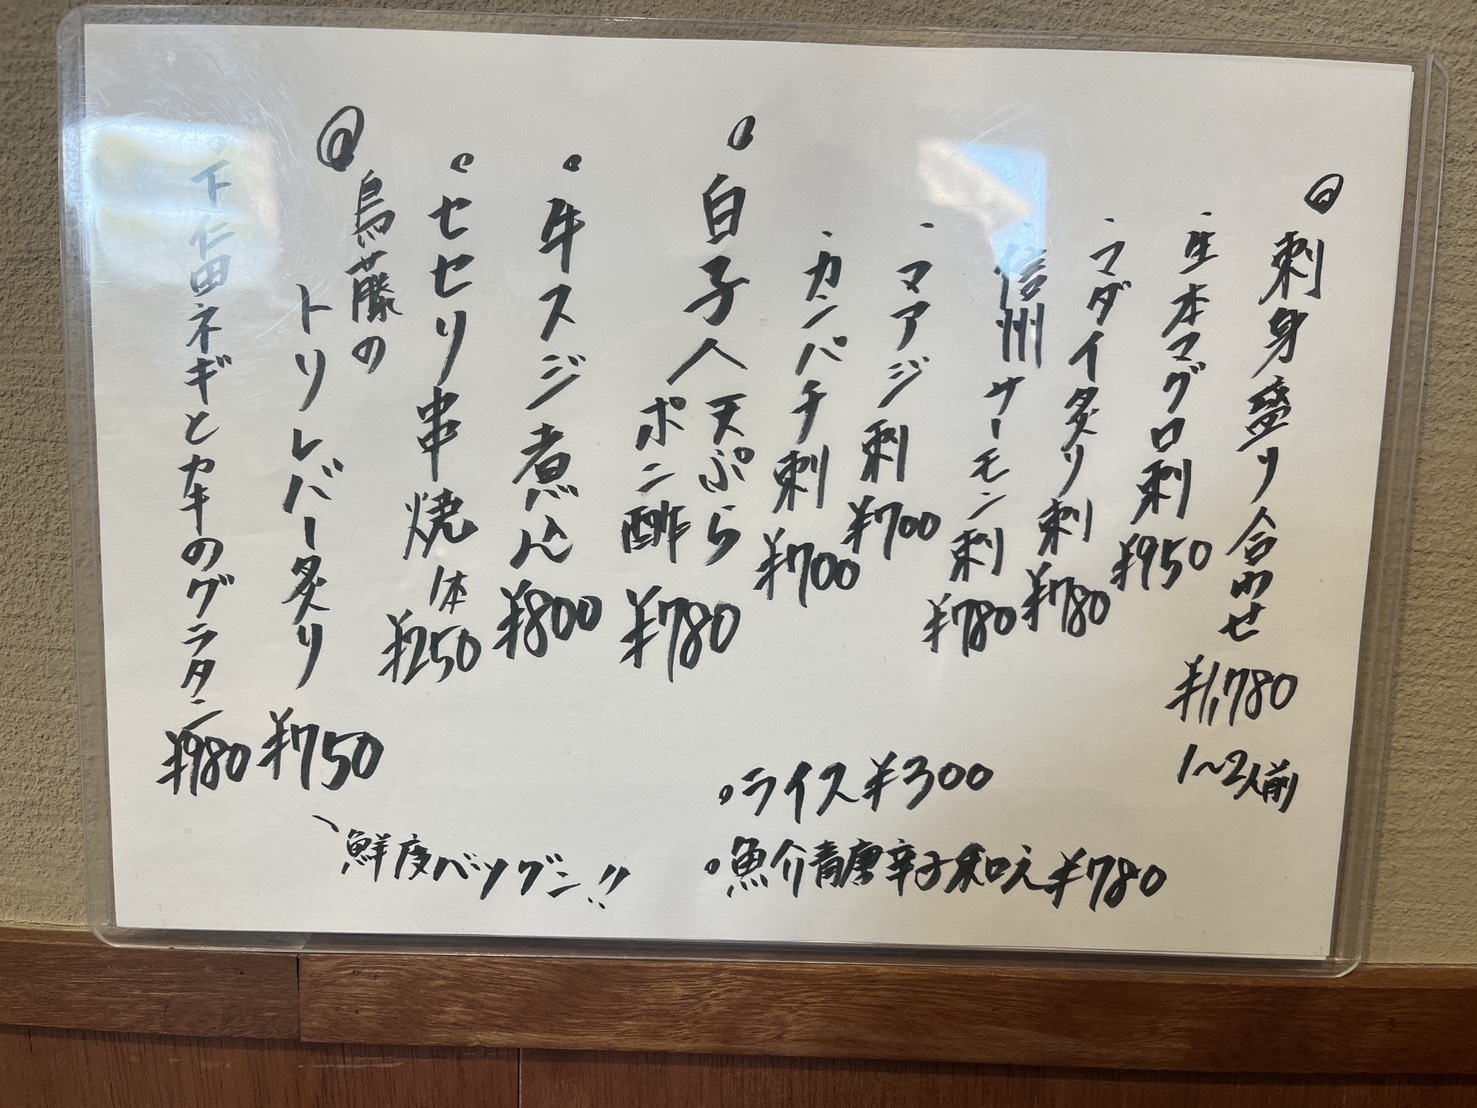 刺身盛り合わせ ¥1,780
1〜2人前
生本マグロ刺 ¥950
マダイ炙り刺 ¥780
信州サーモン刺 ¥780
マアジ刺 ¥700
カンパチ刺 ¥700
白子 天ぷら
ポン酢 ¥780
牛スジ煮込 ¥800
セセリ串焼 1本 ¥250
鳥藤の
トリレバー炙り ¥750
下仁田ネギとカキのグラタン ¥980
ライス ¥300
魚介青唐辛子和え ¥780
鮮度バツグン!!